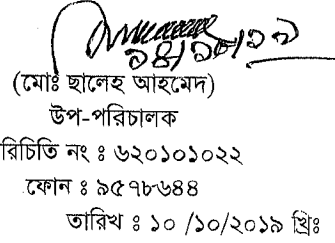 (মোঃ ছালেহ আহমেদ)
উপ-পরিচালক
রিচিতি নং ঃ ৬২০১০১০২২
ফোন ঃ ৯৫৭৮৬৪৪
তারিখ ঃ ১০ /১০/২০১৯ খ্রিঃ